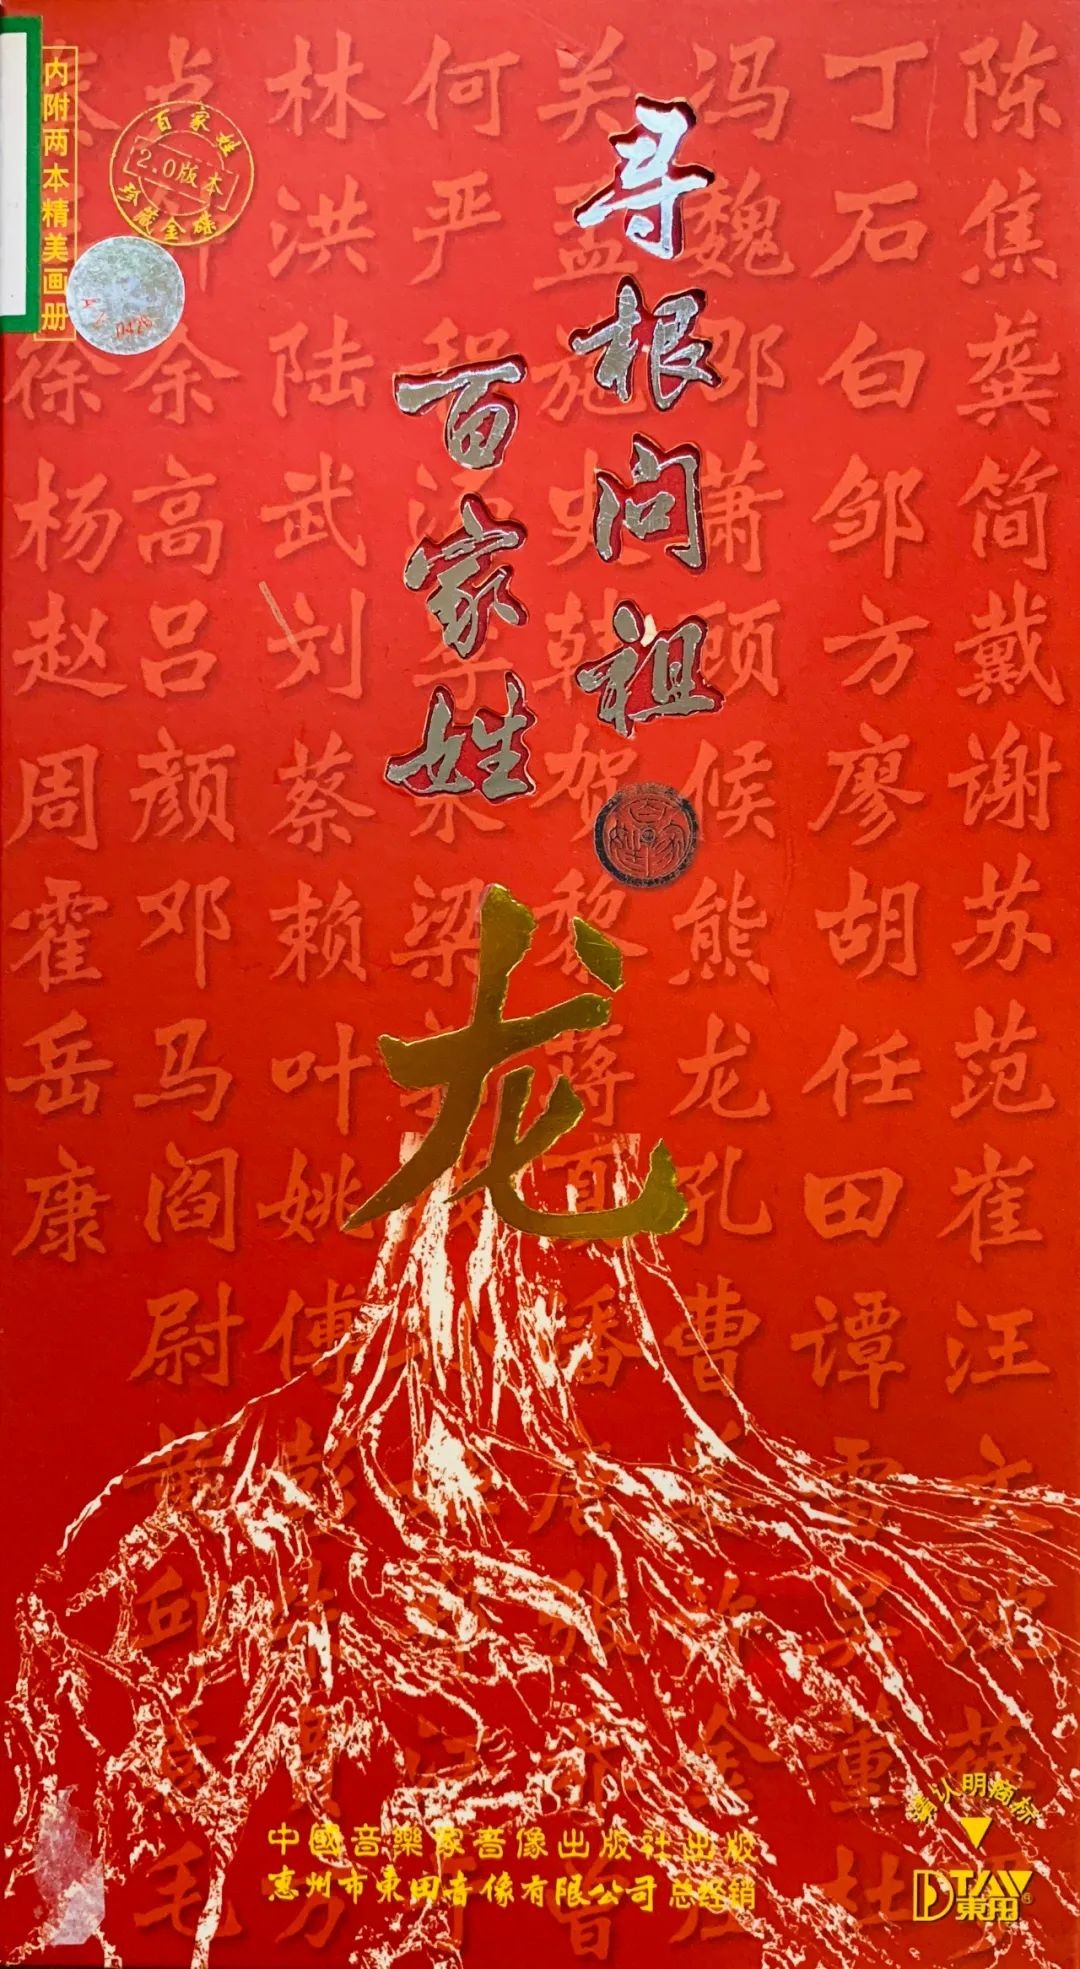 内附两本精美画册
百家姓
2.0版本
珍藏金碟
0426
寻根问祖
百家姓
龙
陈焦龚简戴谢苏范崔汪文沈薛
丁石白邹方廖胡任田谭雷吴董杜
冯魏邵萧顾候熊龙孔曹
金
关孟施史韩贺黎蒋
潘唐张
曾
何严程
梁
林洪陆武刘蔡赖叶姚傅彭
卓
余高吕颜邓马阎尉黄邱
毛
徐杨赵周霍岳康
中國音樂家音像出版社出版
惠州市東田音像有限公司 总经销
认明商标
DTAV
東田®